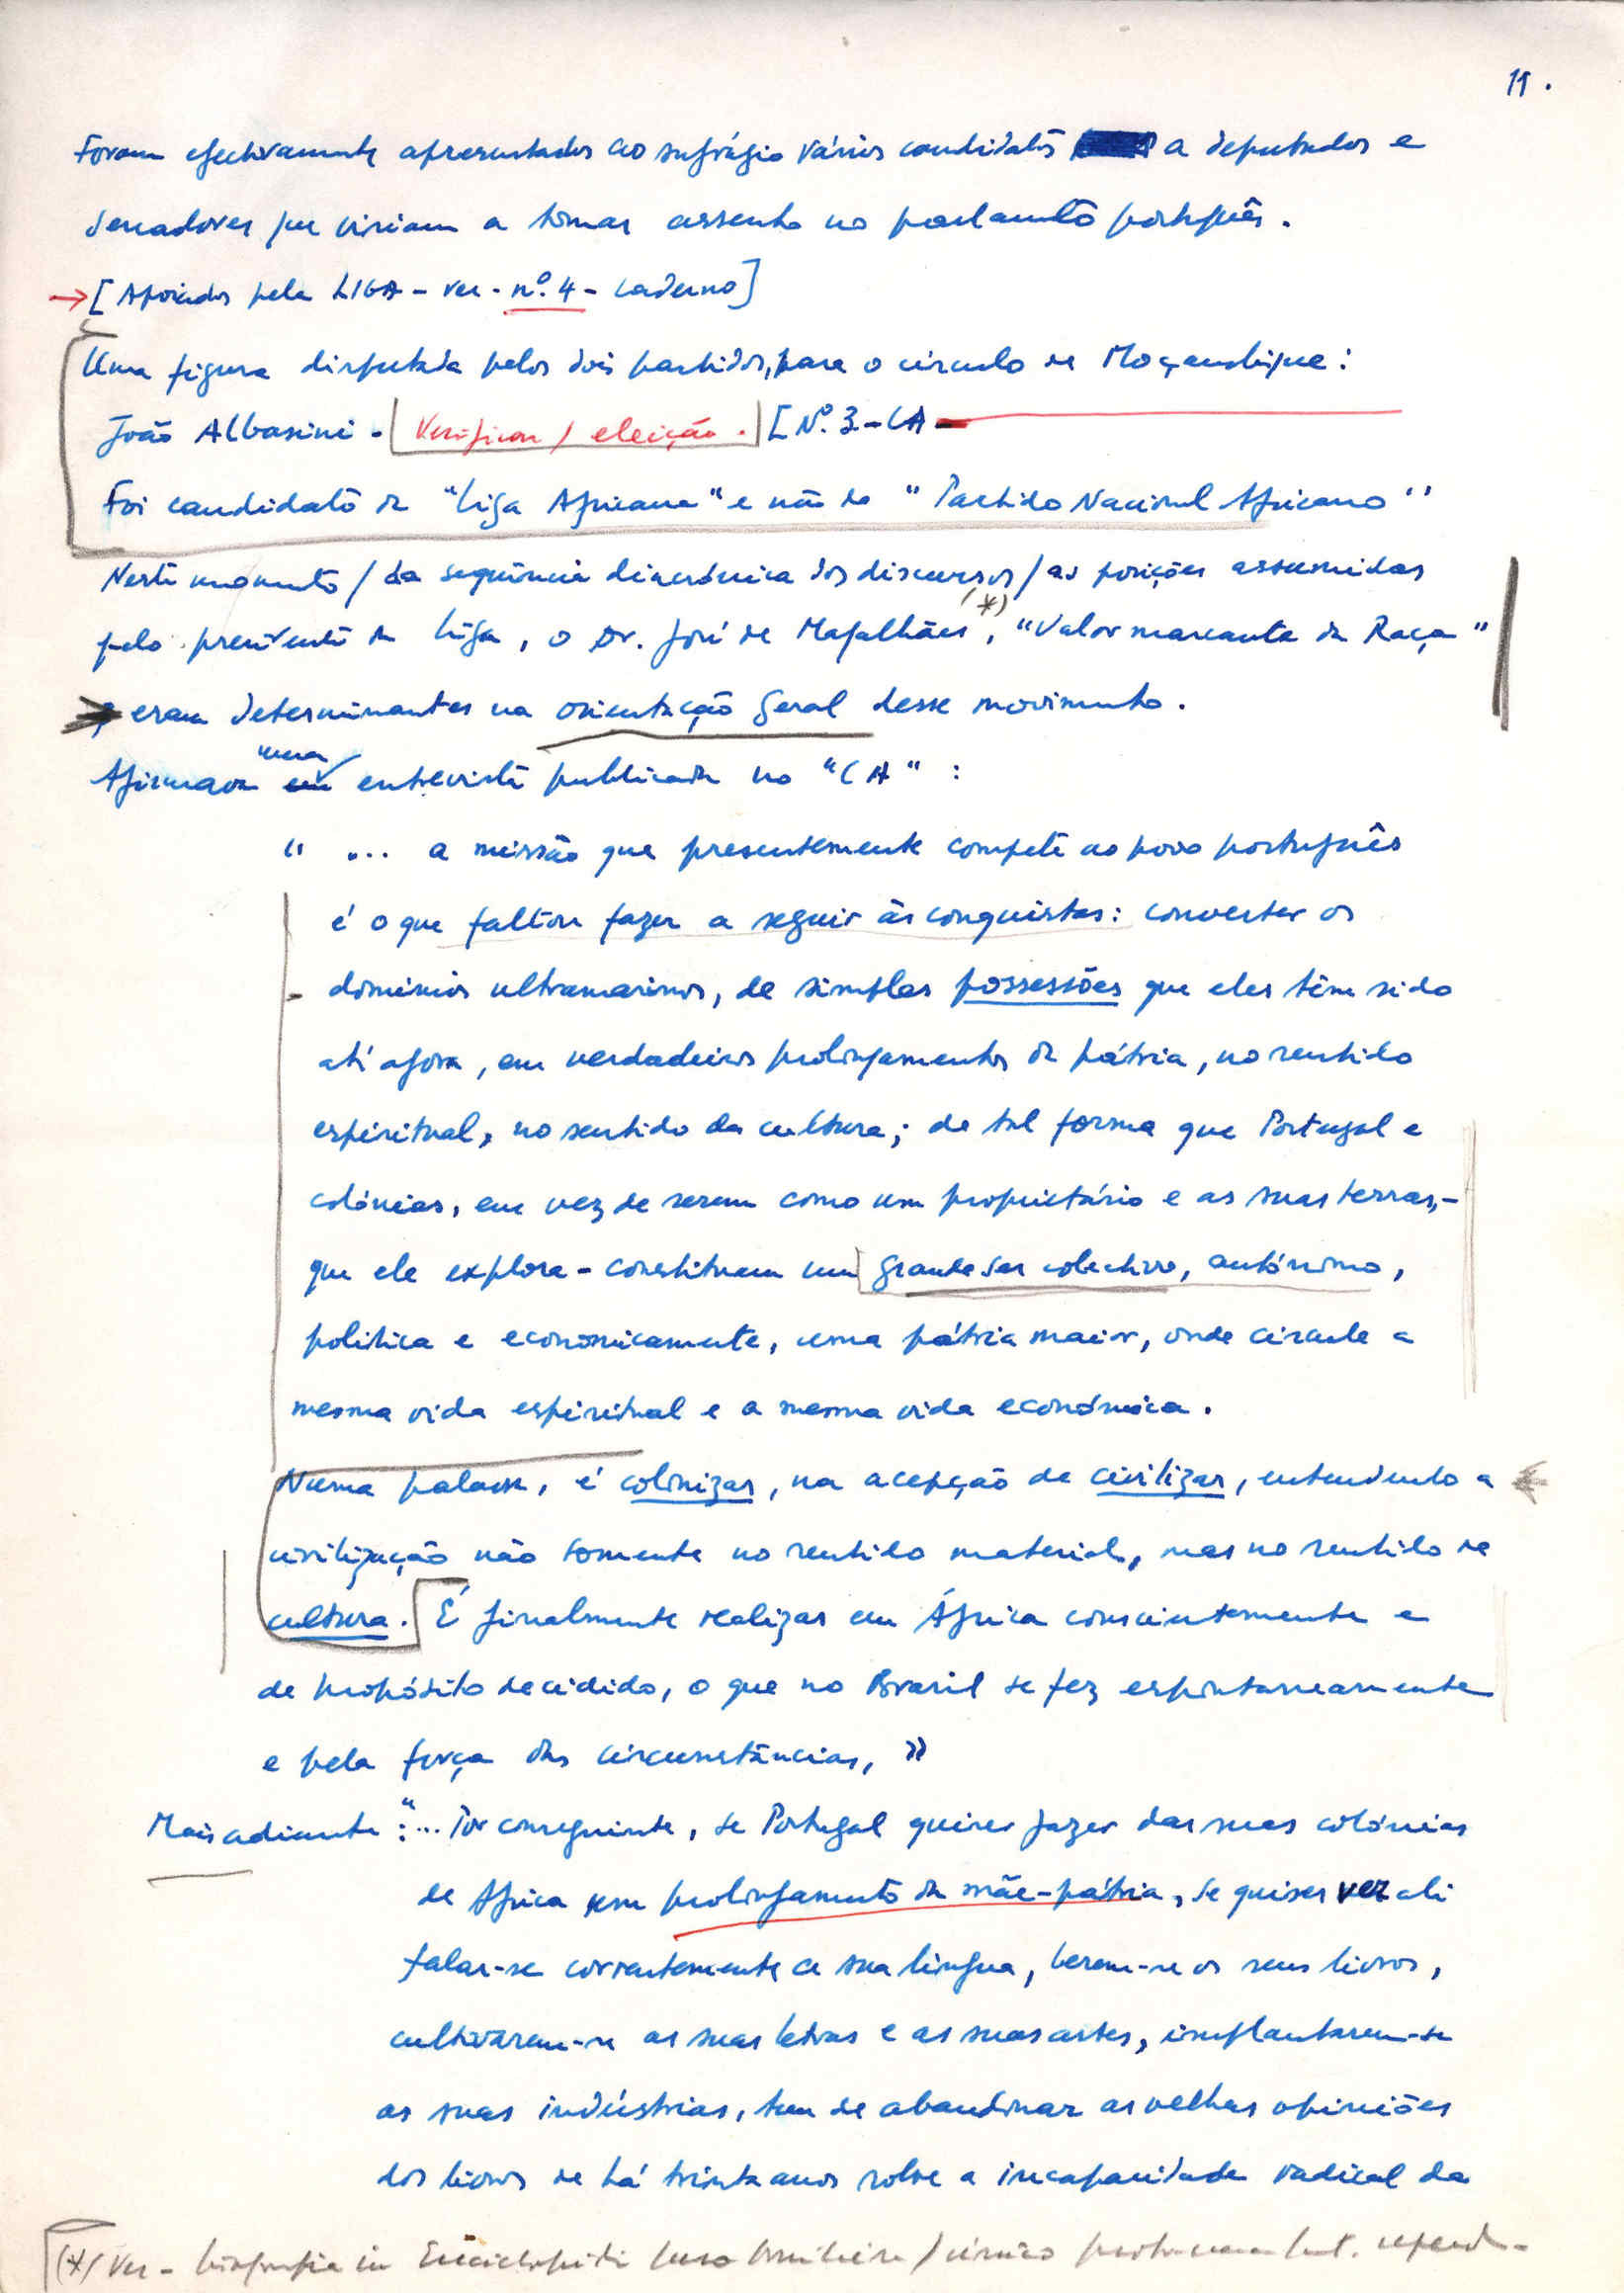 11.
Foram efectivamente apresentados ao sufrágio vários candidatos a deputados e
senadores que viriam a tomar assento no parlamento português.
→ [Apoiados pela LIGA - ver - nº. 4 - caderno]
Uma figura disputada pelos dois partidos, para o círculo de Moçambique:
João Albasini - Verificar / eleição. [Nº. 3 - CA
Foi candidato da "Liga Africana" e não do "Partido Nacional Africano"
Neste momento / da sequência diacrónica dos discursos / as posições assumidas
pelo presidente da Liga, o Dr. José de Magalhães (*), "Valor marcante da Raça"
, eram determinantes na orientação geral desse movimento.
Afirmava uma entrevista publicada no "CA" :
" ... a missão que presentemente compete ao povo português
é o que faltou fazer a seguir às conquistas: converter os
domínios ultramarinos, de simples possessões que eles têm sido
até agora, em verdadeiros prolongamentos da pátria, no sentido
espiritual, no sentido da cultura; de tal forma que Portugal e
colónias, em vez de serem como um proprietário e as suas terras, -
que ele explora - constituem um grande ser colectivo, autónomo,
politica e economicamente, uma pátria maior, onde circule a
mesma vida espiritual e a mesma vida económica.
Numa palavra, é colonizar, na acepção de civilizar, entendendo a
civilização não somente no sentido material, mas no sentido de
cultura. É finalmente realizar em África conscientemente e
de propósito decidido, o que no Brasil se fez espontaneamente
e pela força das circunstâncias, »
Mais adiante : "... Por conseguinte, se Portugal quiser fazer das suas colónias
de Africa um prolongamento da mãe-pátria, se quiser ver ali
falar-se correntemente a sua lingua, lerem-se os seus livros,
cultivarem-se as suas letras e as suas artes, implantarem-se
as suas indústrias, tem de abandonar as velhas opiniões
dos livros de há trinta anos sobre a incapacidade radical da
(*) Ver - biografia in Enciclopédia Luso Brasileira /